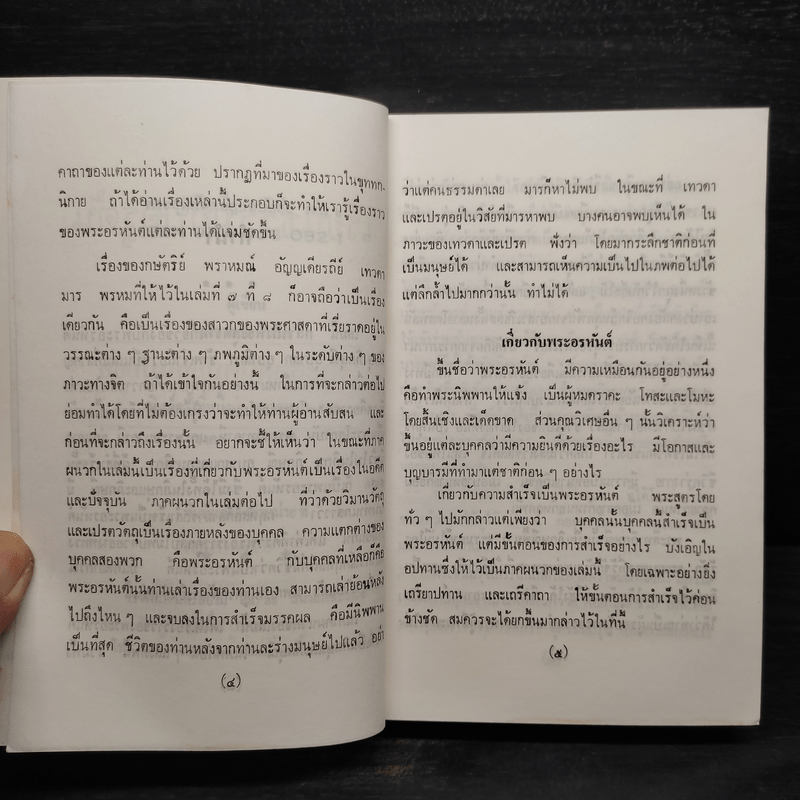 คาถาของแต่ละท่านไว้ด้วย ปรากฏที่มาของเรื่องราวในขุททก-
นิกาย ถ้าได้อ่านเรื่องเหล่านี้ประกอบก็จะทำให้เรารู้เรื่องราว
ของพระอรหันต์แต่ละท่านได้แจ่มชัดขึ้น
เรื่องของกษัตริย์ พราหมณ์ อัญญเดียรถีย์ เทวดา
มาร พรหมที่ให้ไว้ในเล่มที่ ๗ ที่ ๘ ก็อาจถือว่าเป็นเรื่อง
เดียวกัน คือเป็นเรื่องของสาวกของพระศาสดาที่เรี่ยราดอยู่ใน
วรรณะต่าง ๆ ฐานะต่าง ๆ ภพภูมิต่าง ๆ ในระดับต่าง ๆ ของ
ภาวะทางจิต ถ้าได้เข้าใจกันอย่างนี้ ในการที่จะกล่าวต่อไป
ย่อมทำได้โดยที่ไม่ต้องเกรงว่าจะทำให้ท่านผู้อ่านสับสน และ
ก่อนที่จะกล่าวถึงเรื่องนั้น อยากจะชี้ให้เห็นว่า ในขณะที่ภาค
ผนวกในเล่มนี้เป็นเรื่องที่เกี่ยวกับพระอรหันต์เป็นเรื่องในอดีต
และปัจจุบัน ภาคผนวกในเล่มต่อไป ที่ว่าด้วยวิมานวัตถุ
และเปรตวัตถุเป็นเรื่องภายหลังของบุคคล ความแตกต่างของ
บุคคลสองพวก คือพระอรหันต์ กับบุคคลที่เหลือก็คือ
พระอรหันต์นั้นท่านเล่าเรื่องของท่านเอง สามารถเล่าย้อนหลัง
ไปถึงไหน ๆ และจบลงในการสำเร็จมรรคผล คือมีนิพพาน
เป็นที่สุด ชีวิตของท่านหลังจากท่านละร่างมนุษย์ไปแล้ว อย่า
(๔)
ว่าแต่คนธรรมดาเลย มารก็หาไม่พบ ในขณะที่ เทวดา
และเปรตอยู่ในวิสัยที่มารหาพบ บางคนอาจพบเห็นได้ ใน
ภาวะของเทวดาและเปรต ฟังว่า โดยมากระลึกชาติก่อนที่
เป็นมนุษย์ได้ และสามารถเห็นความเป็นไปในภพต่อไปได้
แต่ลึกล้ำไปมากกว่านั้น ทำไม่ได้
เกี่ยวกับพระอรหันต์
ขึ้นชื่อว่าพระอรหันต์ มีความเหมือนกันอยู่อย่างหนึ่ง
คือทำพระนิพพานให้แจ้ง เป็นผู้หมดราคะ โทสะและโมหะ
โดยสิ้นเชิงและเด็ดขาด ส่วนคุณวิเศษอื่น ๆ นั้นวิเคราะห์ว่า
ขึ้นอยู่แต่ละบุคคลว่ามีความยินดีด้วยเรื่องอะไร มีโอกาสและ
บุญบารมีที่ทำมาแต่ชาติก่อน ๆ อย่างไร
เกี่ยวกับความสำเร็จเป็นพระอรหันต์ พระสูตรโดย
ทั่ว ๆ ไปมักกล่าวแต่เพียงว่า บุคคลนั้นบุคคลนี้สำเร็จเป็น
พระอรหันต์ แต่มีขั้นตอนของการสำเร็จอย่างไร บังเอิญใน
อปทานซึ่งให้ไว้เป็นภาคผนวกของเล่มนี้ โดยเฉพาะอย่างยิ่ง
เถรียาปทาน และเถรีคาถา ให้ขั้นตอนการสำเร็จไว้ค่อน
ข้างชัด สมควรจะได้ยกขึ้นมากล่าวไว้ในที่นี้
(๕)